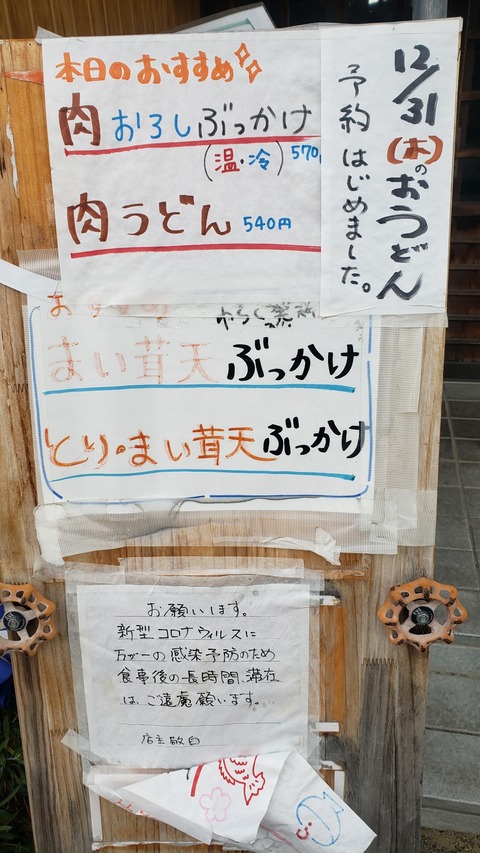 本日のおすすめ
肉おろしぶっかけ
(温・冷) 570
肉うどん 540円
12/31
(木)のおうどん
予約はじめました。
おすすめ
まい茸天ぶっかけ
とり・まい茸天ぶっかけ
お願いします。
新型コロナウィルスに
万が一の感染予防のため
食事後の長時間滞在
はご遠慮願います。
店主敬白